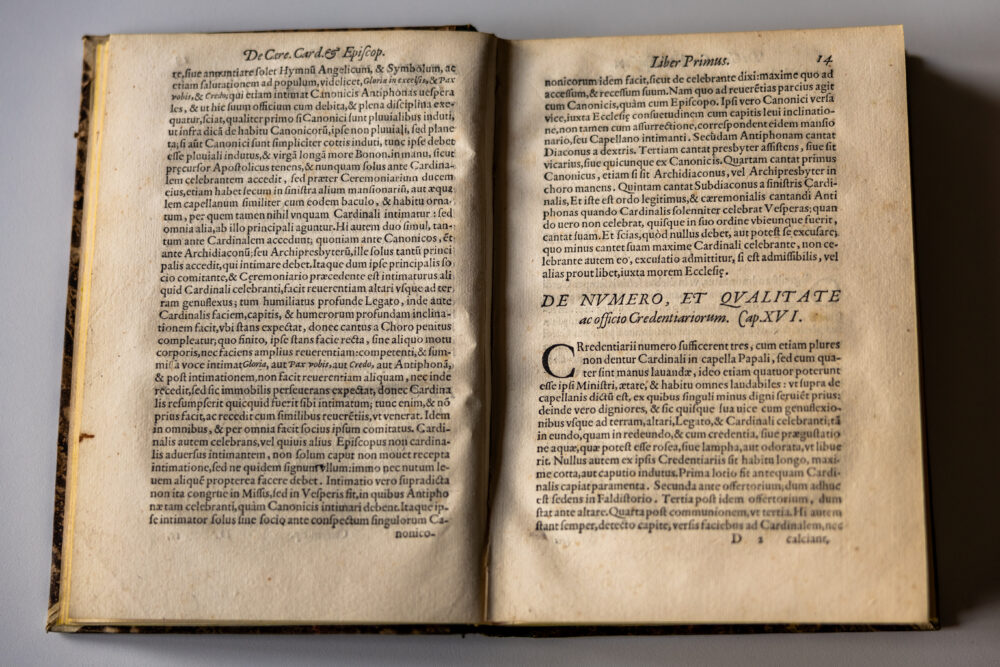 De Cere. Card. & Episcop.
te, siue annuntiare solet Hymnũ Angelicum, & Symbolum, ac
etiam salutationem ad populum, videlicet, Gloria in excelsis, & Pax
vobis, & Credo; qui etiam intimat Canonicis Antiphonas uespera
les, & ut hic suum officium cum debita, & plena disciplina exe-
quatur, sciat, qualiter primo si Canonici sunt pluuialibus induti,
ut infra dicã de habitu Canonicorũ, ipse non pluuiali, sed plane
ta; si aũt Canonici sunt simpliciter cottis induti, tunc ipse debet
esse pluuiali indutus, & virgã longã more Bonon. in manu, sicut
precursor Apostolicus tenens, & nunquam solus ante Cardina-
lem celebrantem accedit, sed præter Ceremoniarium ducem
eius, etiam habet secum in sinistra alium mansionariũ, aut æqua
lem capellanum similiter cum eodem baculo, & habitu orna-
tum, per quem tamen nihil vnquam Cardinali intimatur: sed
omnia alia, ab illo principali aguntur. Hi autem duo simul, tan-
tum ante Cardinalem accedunt; quoniam ante Canonicos, et
ante Archidiaconũ, seu Archipresbyterũ, ille solus tantũ princi
palis accedit, qui intimare debet. Itaque dum ipse principalis so
cio comitante, & Ceremoniario præcedente est intimaturus ali
quid Cardinali celebranti, facit reuerentiam altari vsque ad ter
ram genuflexus; tum humiliatus profunde Legato, inde ante
Cardinalis faciem, capitis, & humerorum profundam inclina-
tionem facit, vbi stans expectat, donec cantus a Choro penitus
compleatur; quo finito, ipse stans facie recta, sine aliquo motu
corporis, nec faciens amplius reuerentiam: competenti, & sum-
missa voce intimat Gloria, aut Pax vobis, aut Credo, aut Antiphonã,
& post intimationem, non facit reuerentiam aliquam, nec inde
recedit, sed sic immobilis perseuerans expectat, donec Cardina
lis resumpserit quicquid fuerit sibi intimatum; tunc enim, & nõ
prius facit, ac recedit cum similibus reuerẽtiis, vt venerat. Idem
in omnibus, & per omnia facit socius ipsum comitatus. Cardi-
nalis autem celebrans, vel quiuis alius Episcopus non cardina-
lis aduersus intimantem, non solum caput non mouet recepta
intimatione, sed ne quidem signum vllum: immo nec nutum le-
uem aliquẽ propterea facere debet. Intimatio vero supradicta
non ita congrue in Missis, sed in Vesperis fit, in quibus Antipho
næ tam celebranti, quàm Canonicis intimari debent. Itaque ip-
se intimator solus siue socio ante conspectum singulorum Ca-
nonico-
Liber Primus. 14
nonicorum idem facit, sicut de celebrante dixi: maxime quo ad
accessum, & recessum suum. Nam quo ad reuerẽtias parcius agit
cum Canonicis, quàm cum Episcopo. Ipsi vero Canonici versa
vice, iuxta Ecclesiȩ consuetudinem cum capitis leui inclinatio-
ne, non tamen cum assurrectione, correspondent eidem mansio
nario, seu Capellano intimanti. Secũdam Antiphonam cantat
Diaconus a dextris. Tertiam cantat presbyter assistens, siue sit
vicarius, siue quicunque ex Canonicis. Quartam cantat primus
Canonicus, etiam si sit Archidiaconus, vel Archipresbyter in
choro manens. Quintam cantat Subdiaconus a sinistris Cardi-
nalis, Et iste est ordo legitimus, & cæremonialis cantandi Anti
phonas quando Cardinalis solenniter celebrat Vesperas; quan
do uero non celebrat, quisque in suo ordine vbicunque fuerit,
cantat suam. Et scias, quòd nullus debet, aut potest se excusare;
quo minus cantet suam maxime Cardinali celebrante, non ce-
lebrante autem eo, excusatio admittitur, si est admissibilis, vel
alias prout libet, iuxta morem Ecclesiȩ.
DE NVMERO, ET QVALITATE
ac officio Credentiariorum. Cap. XVI.
CRredentiarii numero sufficerent tres, cum etiam plures
non dentur Cardinali in capella Papali, sed cum qua-
ter sint manus lauandæ, ideo etiam quatuor poterunt
esse ipsi Ministri, ætate, & habitu omnes laudabiles: vt supra de
capellanis dictũ est, ex quibus singuli minus digni seruiẽt prius;
deinde vero digniores, & sic quisque sua uice cum genuflexio-
nibus vsque ad terram, altari, Legato, & Cardinali celebranti; tã
in eundo, quam in redeundo, & cum credentia, siue prægustatio
ne aquæ, quæ potest esse rosea, siue lampha, aut odorata, vt libue
rit. Nullus autem ex ipsis Credentiariis sit habitu longo, maxi-
me cotta, aut caputio indutus. Prima lotio fit antequam Cardi-
nalis capiat paramenta. Secunda ante offertorium, dum adhuc
est sedens in Faldistorio. Tertia post idem offertorium, dum
stat ante altare. Quarta post communionem, vt tertia. Hi autem
stant semper, detecto capite, versis faciebus ad Cardinalem, nec
D 2 calciant,